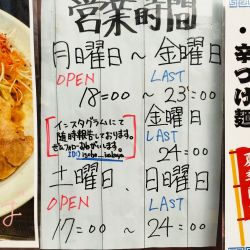 営業時間
月曜日 ~ 金曜日
OPEN LAST
18=00 ~ 23=00
金曜日
LAST
24=00
インスタグラムにて
随時報告しております。
土曜日、日曜日
OPEN LAST
17=00 ~ 24=00
・辛つけ麺